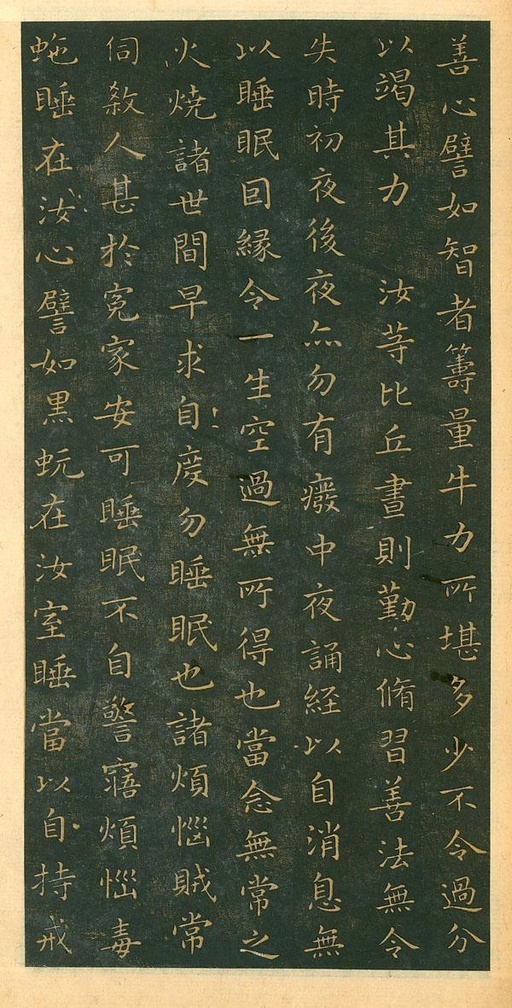 善心譬如智者籌量牛力所堪多少不令過分
以竭其力　汝等比丘晝則勤心脩習善法無令
失時初夜後夜亦勿有癈中夜誦經以自消息無
以睡眠囙緣令一生空過無所得也當念無常之
火燒諸世間早求自度勿睡眠也諸煩惱賊常
伺殺人甚於冤家安可睡眠不自警寤煩惱毒
虵睡在汝心譬如黑蚖在汝室睡當以自持戒